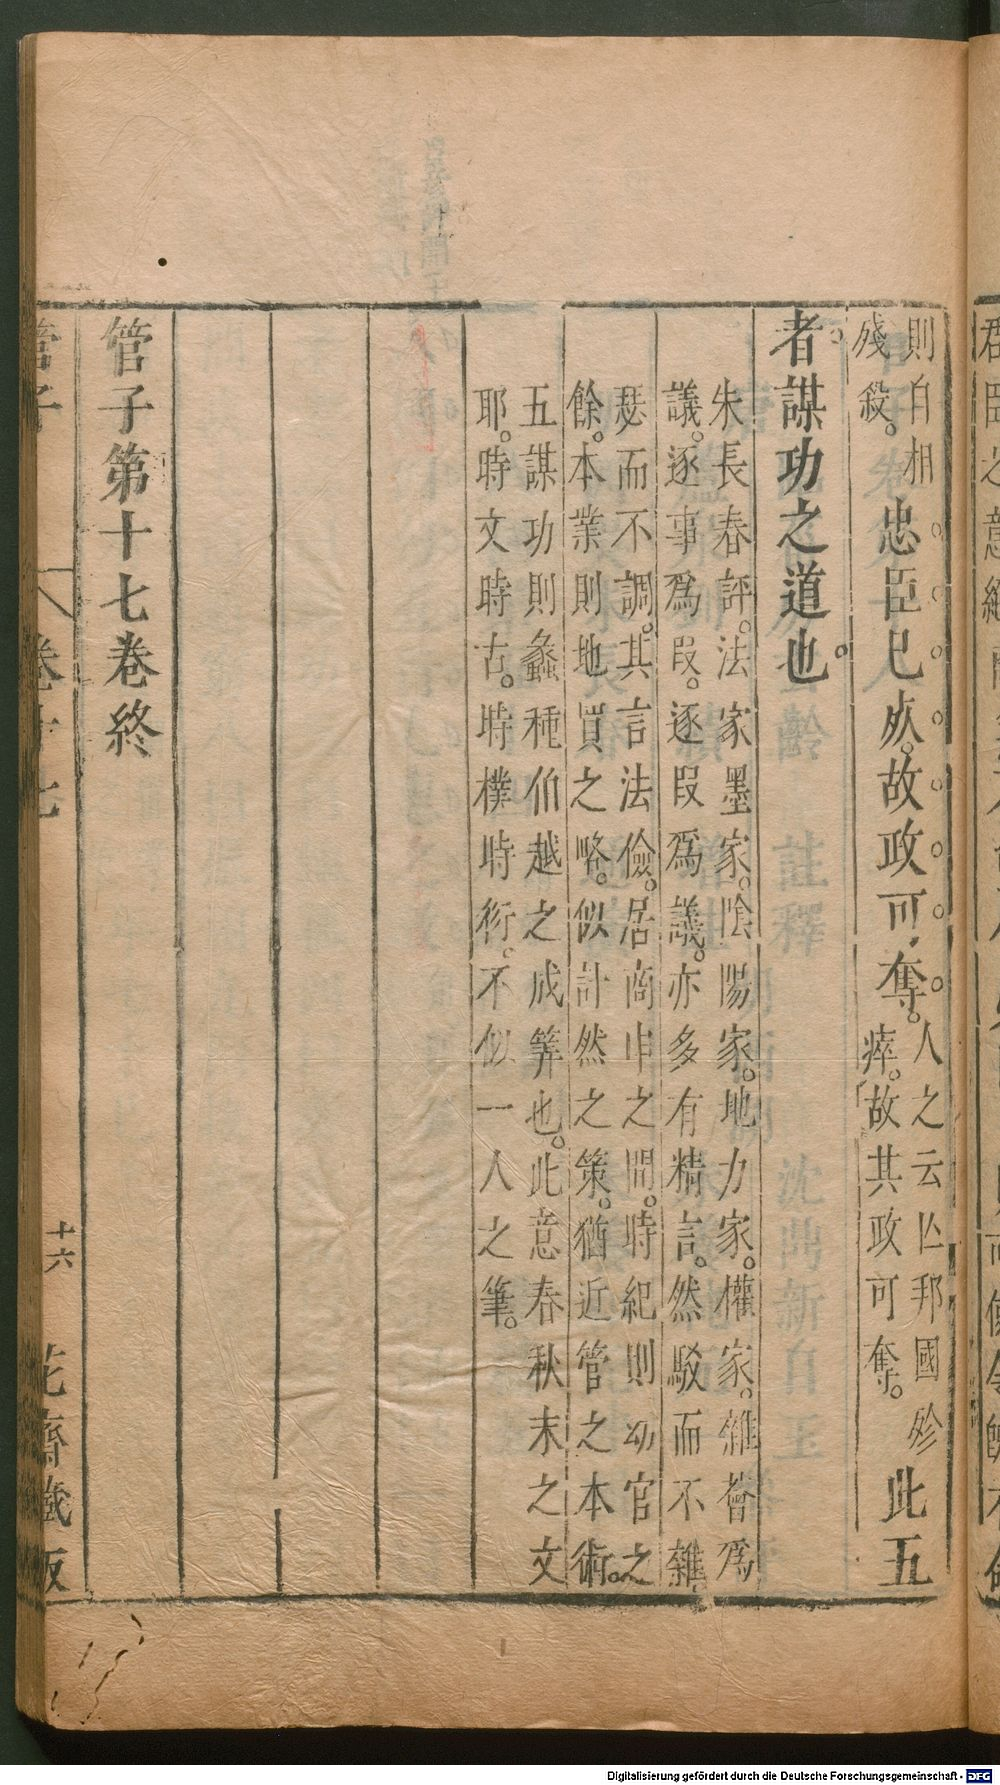 則自相
殘殺。
忠臣已死。故政可奪。
人之云亾邦國殄
瘁。故其政可奪。
此五
者謀功之道也。
朱長春評。法家墨家。陰陽家。地力家。權家。雜薈爲
議。逐事爲段。逐段爲議。亦多有精言。然駁而不雜
瑟而不調。其言法儉。居商申之間。時紀則幼官之
餘。本業則地買之略。似計然之策。猶近管之本術。
五謀功則蠡種伯越之成筭也。此意春秋末之文
耶。時文時古。時樸時衍。不似一人之筆。
管子第十七卷終
管子
卷十七
十六
花齋藏板
Digitalisierung gefördert durch die Deutsche Forschungsgemeinschaft - DFG